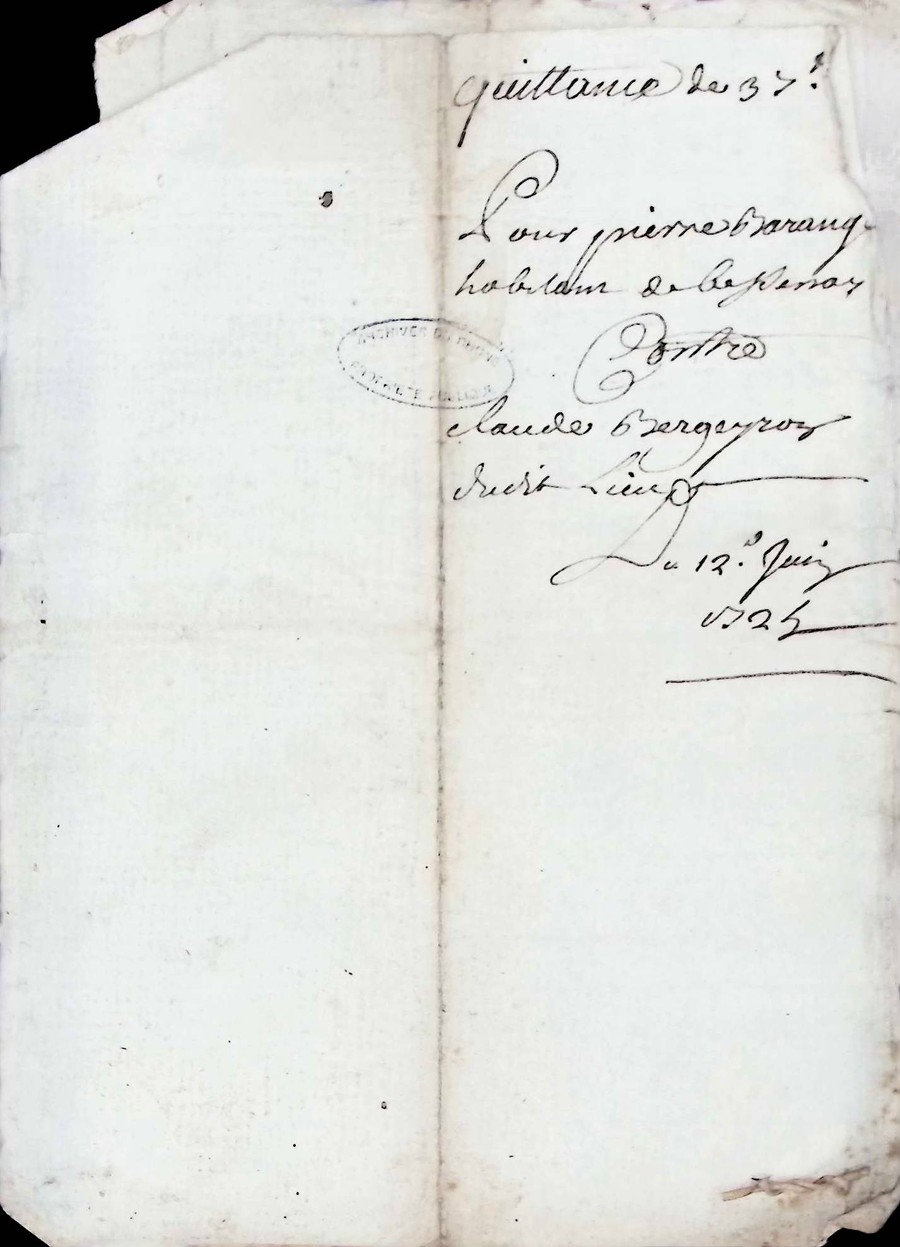 quittance de 37#
Pour pierre Barang
habitant de bessenay
Contre
claude Bergeyron
dudit Lieu
Du 12e Juin
1724
ARCHIVES DU RHONE
PROPRIETE PUBLIQUE